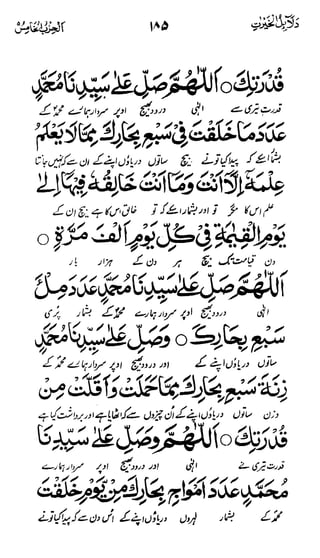 دلائل الخیرات ۱۸۵ الحزب الخامس
قُدْرَتِكَ ○ اَللّٰهُمَّ صَلِّ عَلٰى سَيِّدِنَا مُحَمَّدٍ
قدرت تیری سے الٰہی درود بھیج اوپر سردار ہمارے محمدؐ کے
عَدَدَ مَا خَلَقْتَ فِيْ سَبْعِ بِحَارِكَ مِمَّا لَا يَعْلَمُ
بشمار اسکے کہ پیدا کیا تونے بیچ ساتوں دریاؤں اپنے کے اُن سے کہ نہیں جانتا
عِلْمَهٗ اِلَّا اَنْتَ وَمَا اَنْتَ خَالِقُهٗ فِيْهَا اِلٰى
علم اس کا مگر تو اور بشمار اسکے کہ تو خالق اس کا ہے بیچ ان کے
يَوْمِ الْقِيٰمَةِ فِيْ كُلِّ يَوْمٍ اَلْفَ مَرَّةٍ ○
دن قیامت تک بیچ ہر دن کے ہزار بار
اَللّٰهُمَّ صَلِّ عَلٰى سَيِّدِنَا مُحَمَّدٍ عَدَدَ مِلْءِ
الٰہی درود بھیج اوپر سردار ہمارے محمدؐ کے بشمار پُری
سَبْعِ بِحَارِكَ ○ وَصَلِّ عَلٰى سَيِّدِنَا مُحَمَّدٍ
ساتوں دریاؤں اپنے کے اور درود بھیج اوپر سردار ہمارے محمدؐ کے
زِنَةَ سَبْعِ بِحَارِكَ مِمَّا حَمَلَتْ وَاَقَلَّتْ مِنْ
وزن ساتوں دریاؤں اپنے کے اُن چیزوں سے کہ اٹھایا ہے اور برداشت کیا ہے
قُدْرَتِكَ ○ اَللّٰهُمَّ وَصَلِّ عَلٰى سَيِّدِنَا
قدرت تیری نے الٰہی اور درود بھیج اوپر سردار ہمارے
مُحَمَّدٍ عَدَدَ اَمْوَاجِ بِحَارِكَ مِنْ يَّوْمِ خَلَقْتَ
محمدؐ کے بشمار لہروں دریاؤں اپنے کے اُس دن سے کہ پیدا کیا تونے